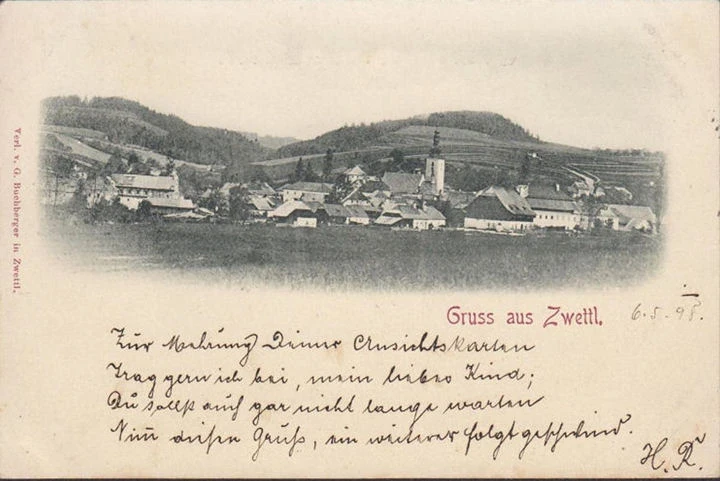 Verl. v. G. Buchberger in Zwettl.
Gruss aus Zwettl.
6.5.98.
Zur Mehrung Deiner Ansichtskarten
Trag gern ich bei, mein liebes Kind;
Du sollst auch gar nicht lange warten
Nim̅ diesen Gruß, ein weiterer folgt geschwind.
H. R.